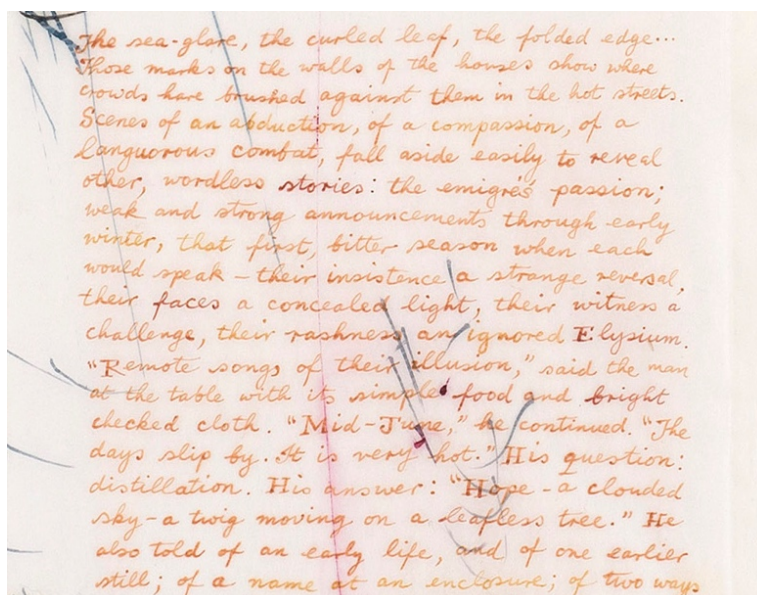 The sea-glare, the curled leaf, the folded edge...
Those marks on the walls of the houses show where
crowds have brushed against them in the hot streets.
Scenes of an abduction, of a compassion, of a
languorous combat, fall aside easily to reveal
other, wordless stories: the emigré's passion;
weak and strong announcements through early
winter, that first, bitter season when each
would speak – their insistence a strange reversal,
their faces a concealed light, their witness a
challenge, their rashness an ignored Elysium.
"Remote songs of their illusion," said the man
at the table with its simple food and bright
checked cloth. "Mid-June," he continued. "The
days slip by. It is very hot." His question:
distillation. His answer: "Hope – a clouded
sky – a twig moving on a leafless tree." He
also told of an early life, and of one earlier
still; of a name at an enclosure; of two ways